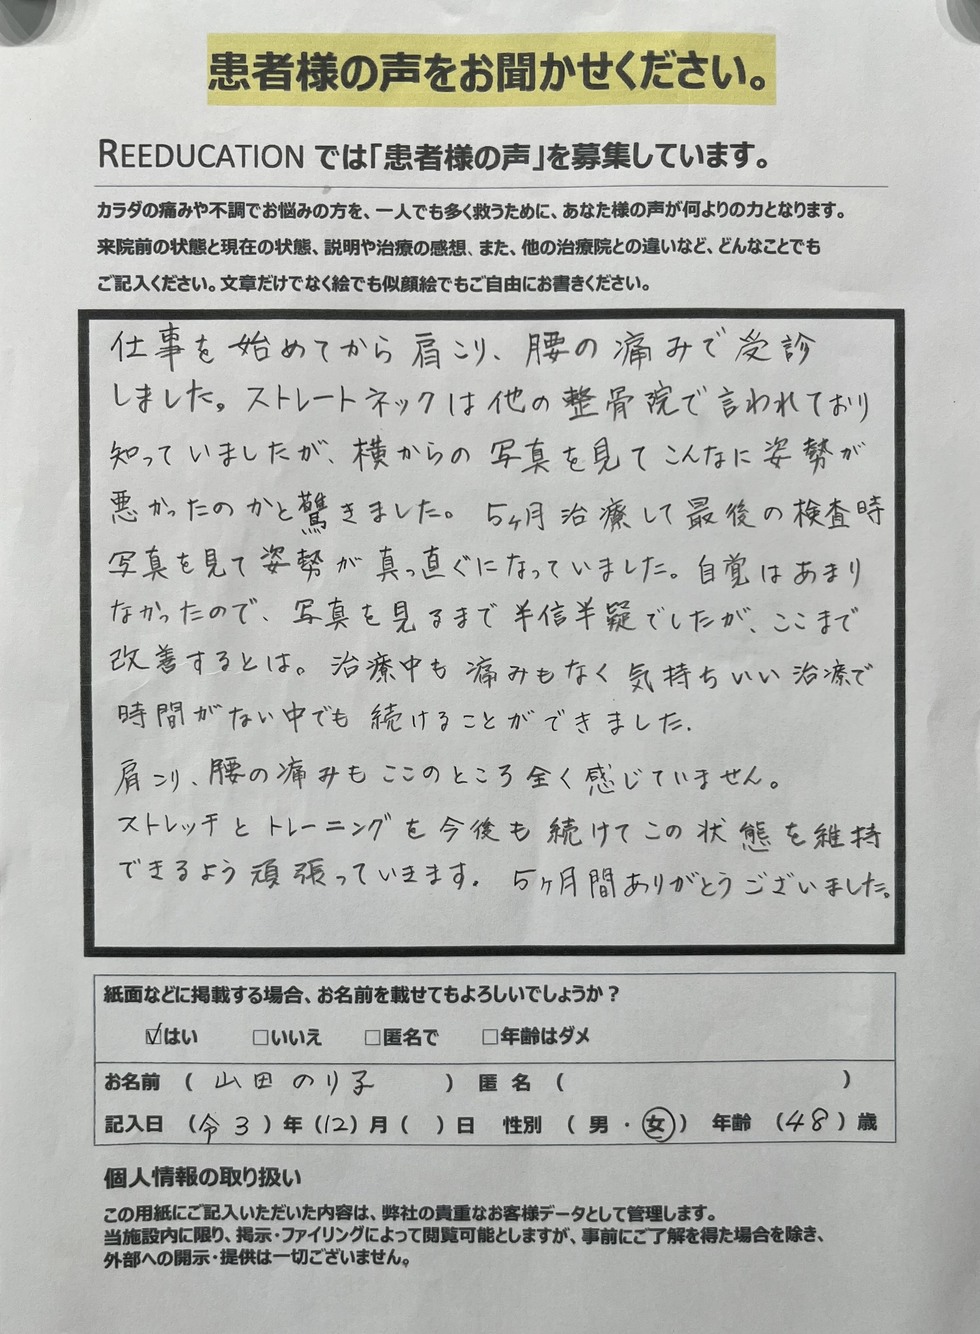 患者様の声をお聞かせください。
REEDUCATION では「患者様の声」を募集しています。
カラダの痛みや不調でお悩みの方を、一人でも多く救うために、あなた様の声が何よりの力となります。
来院前の状態と現在の状態、説明や治療の感想、また、他の治療院との違いなど、どんなことでも
ご記入ください。文章だけでなく絵でも似顔絵でもご自由にお書きください。
仕事を始めてから肩こり、腰の痛みで受診
しました。ストレートネックは他の整骨院で言われており
知っていましたが、横からの写真を見てこんなに姿勢が
悪かったのかと驚きました。5ヶ月治療して最後の検査時
写真を見て姿勢が真っ直ぐになっていました。自覚はあまり
なかったので、写真を見るまで半信半疑でしたが、ここまで
改善するとは。治療中も痛みもなく気持ちいい治療で
時間がない中でも続けることができました.
肩こり、腰の痛みもここのところ全く感じていません。
ストレッチとトレーニングを今後も続けてこの状態を維持
できるよう頑張っていきます. 5ヶ月間ありがとうございました。
紙面などに掲載する場合、お名前を載せてもよろしいでしょうか？
☑はい □いいえ □匿名で □年齢はダメ
お名前 （ 山田のり子 ） 匿 名 （ ）
記入日 （令3）年（12）月（ ）日 性別 （ 男 ・ 女 ） 年齢 （48）歳
個人情報の取り扱い
この用紙にご記入いただいた内容は、弊社の貴重なお客様データとして管理します。
当施設内に限り、掲示・ファイリングによって閲覧可能としますが、事前にご了解を得た場合を除き、
外部への開示・提供は一切ございません。